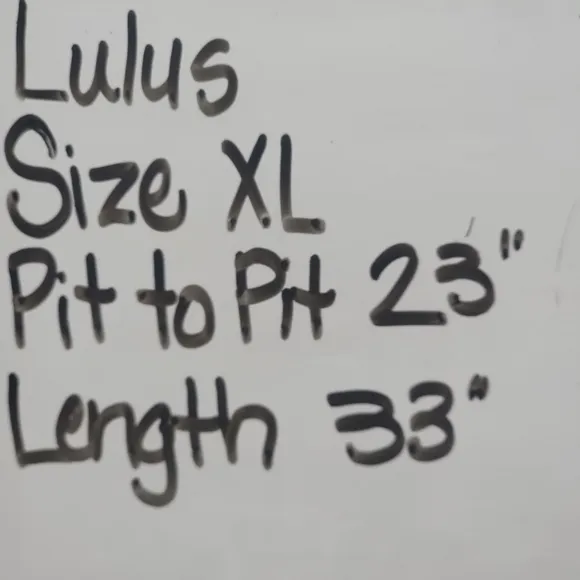 Lulus
Size XL
Pit to Pit 23"
Length 33"